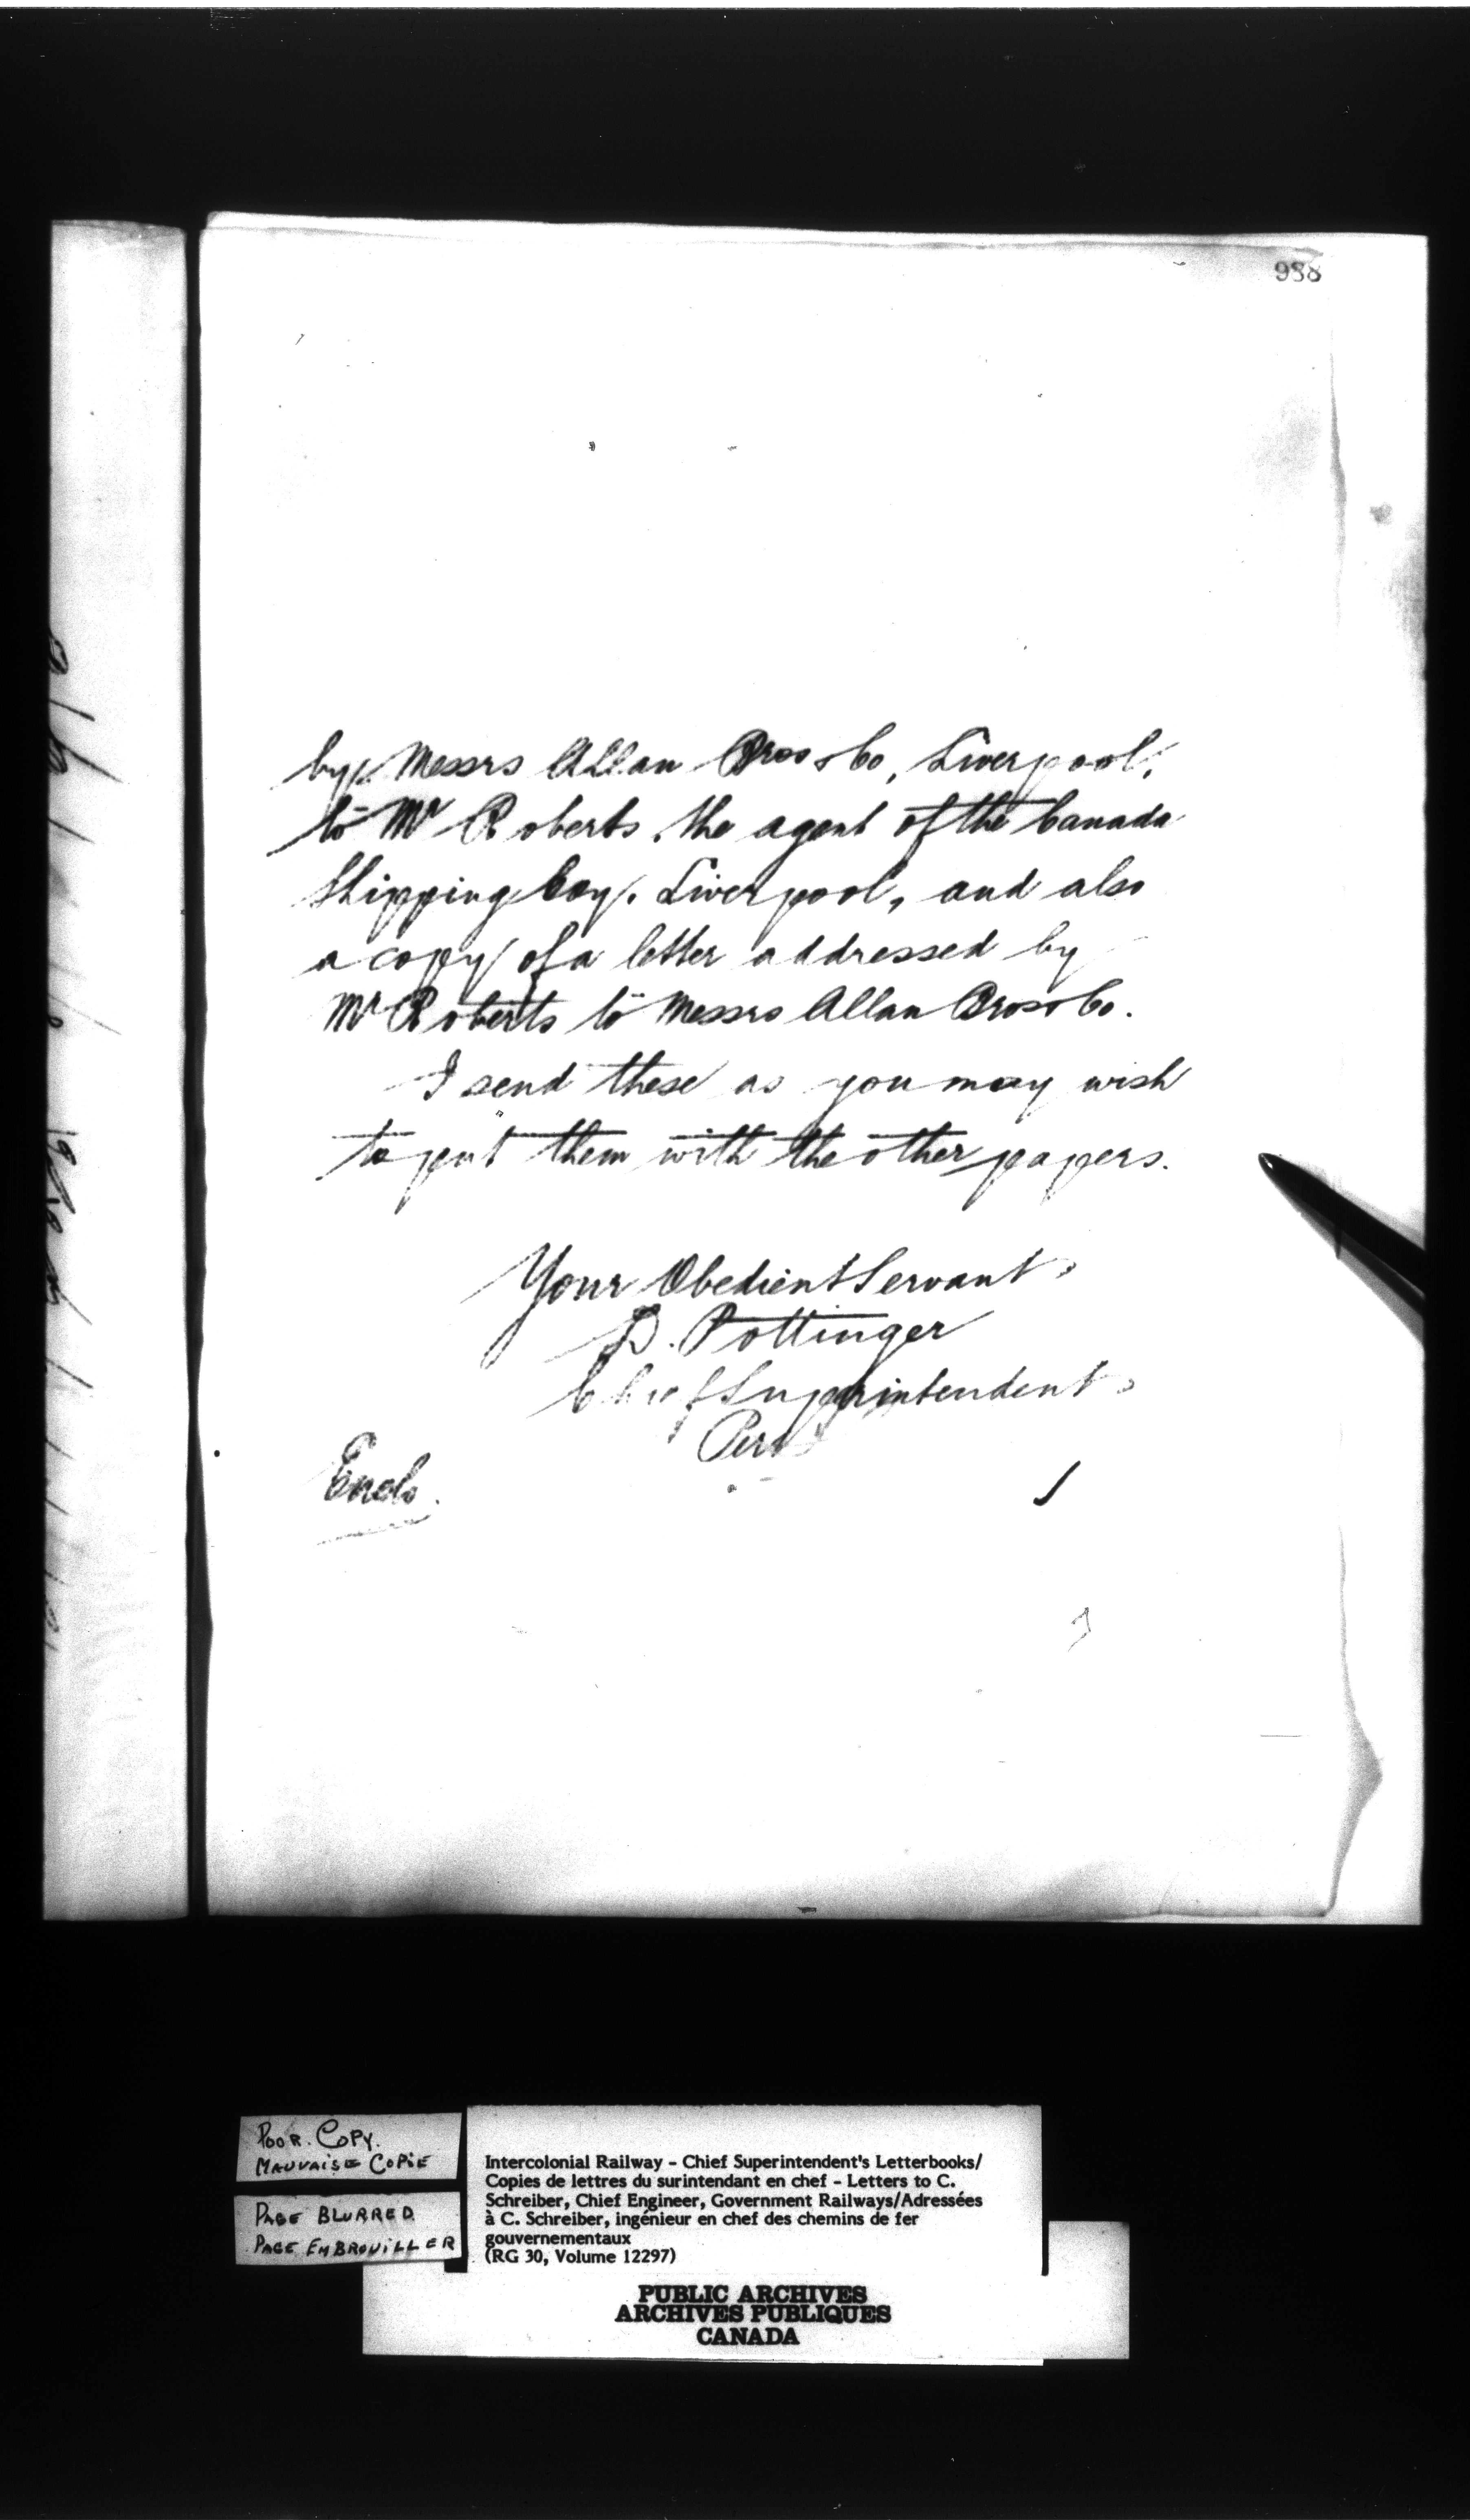 988
by Messrs Allan Bros & Co, Liverpool,
to Mr Roberts, the agent of the Canada
Shipping Coy. Liverpool, and also
a copy of a letter addressed by
Mr Roberts to Messrs Allan Bros & Co.
I send these as you may wish
to put them with the other papers.
Your Obedient Servant
D. Pottinger
Chief Superintendent
Per
Encls.
POOR. COPY.
MAUVAISE COPIE
PAGE BLURRED
PAGE EMBROUILLER
Intercolonial Railway - Chief Superintendent's Letterbooks/
Copies de lettres du surintendant en chef - Letters to C.
Schreiber, Chief Engineer, Government Railways/Adressées
à C. Schreiber, ingénieur en chef des chemins de fer
gouvernementaux
(RG 30, Volume 12297)
PUBLIC ARCHIVES
ARCHIVES PUBLIQUES
CANADA